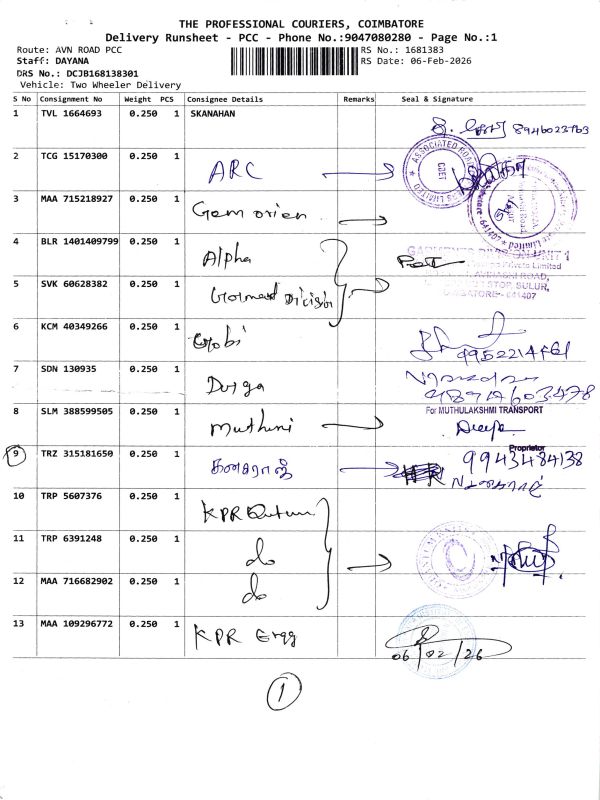 THE PROFESSIONAL COURIERS, COIMBATORE
Delivery Runsheet - PCC - Phone No.:9047080280 - Page No.:1
Route: AVN ROAD PCC
RS No.: 1681383
Staff: DAYANA
RS Date: 06-Feb-2026
DRS No.: DCJB168138301
Vehicle: Two Wheeler Delivery
S No Consignment No Weight PCS Consignee Details Remarks Seal & Signature
1 TVL 1664693 0.250 1 SKANAHAN
2 TCG 15170300 0.250 1 ARC
3 MAA 715218927 0.250 1 Gem orien
4 BLR 1401409799 0.250 1 Alpha
5 SVK 60628382 0.250 1
6 KCM 40349266 0.250 1 Gobi
7 SDN 130935 0.250 1 Durga
8 SLM 388599505 0.250 1 Muthuni
For MUTHULAKSHMI TRANSPORT
Deepa
Proprietor
9 TRZ 315181650 0.250 1 கனகராஜ் 9943484138
10 TRP 5607376 0.250 1 KPR
11 TRP 6391248 0.250 1 do
12 MAA 716682902 0.250 1 do
13 MAA 109296772 0.250 1 KPR Engg
06/02/26
1